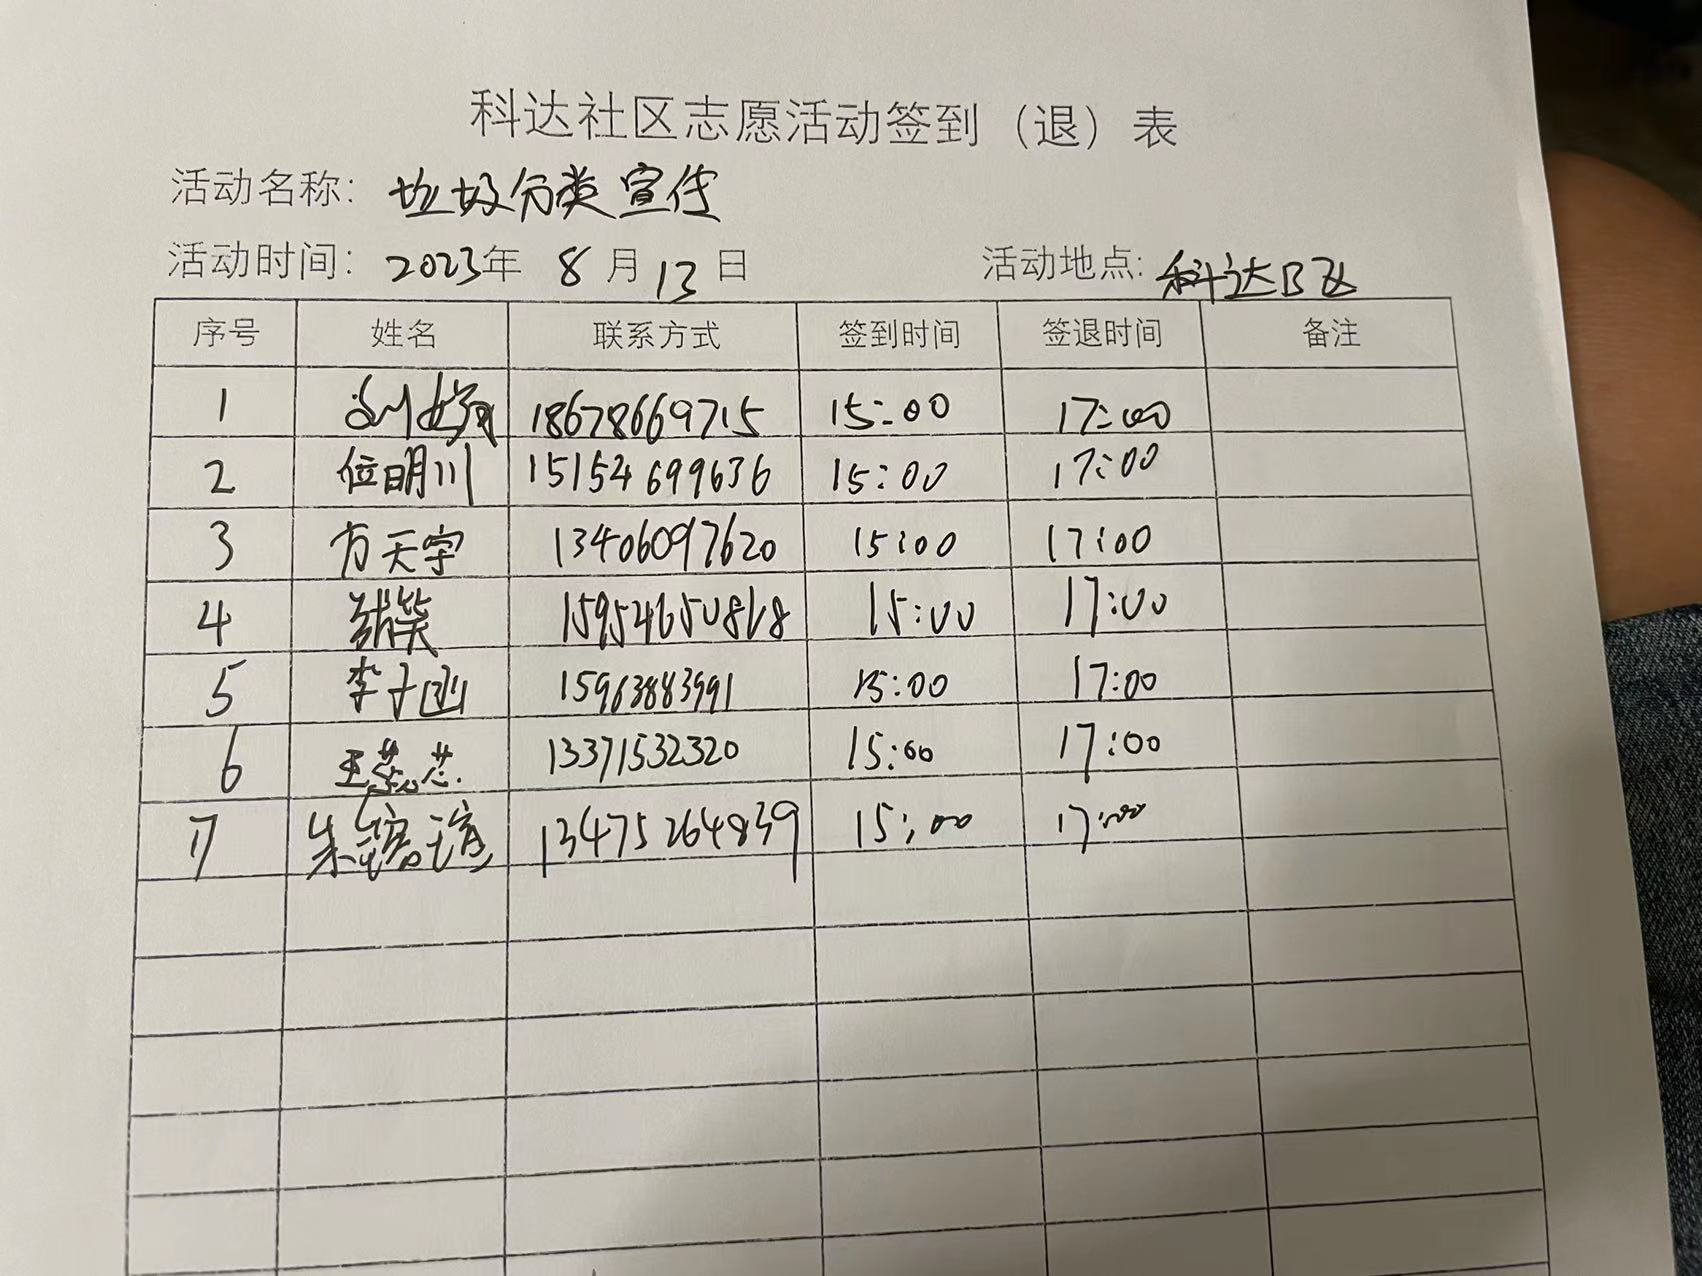 科达社区志愿活动签到（退）表
活动名称：垃圾分类宣传
活动时间：2023年 8月13日 活动地点:科达B区
序号 姓名 联系方式 签到时间 签退时间 备注
1 刘 18678669715 15:00 17:00
2 位明川 15154699636 15:00 17:00
3 方天宇 13406097620 15:00 17:00
4 15954650868 15:00 17:00
5 李子函 15963883991 15:00 17:00
6 王蕊芯 13371532320 15:00 17:00
7 朱 13475264839 15:00 17:00